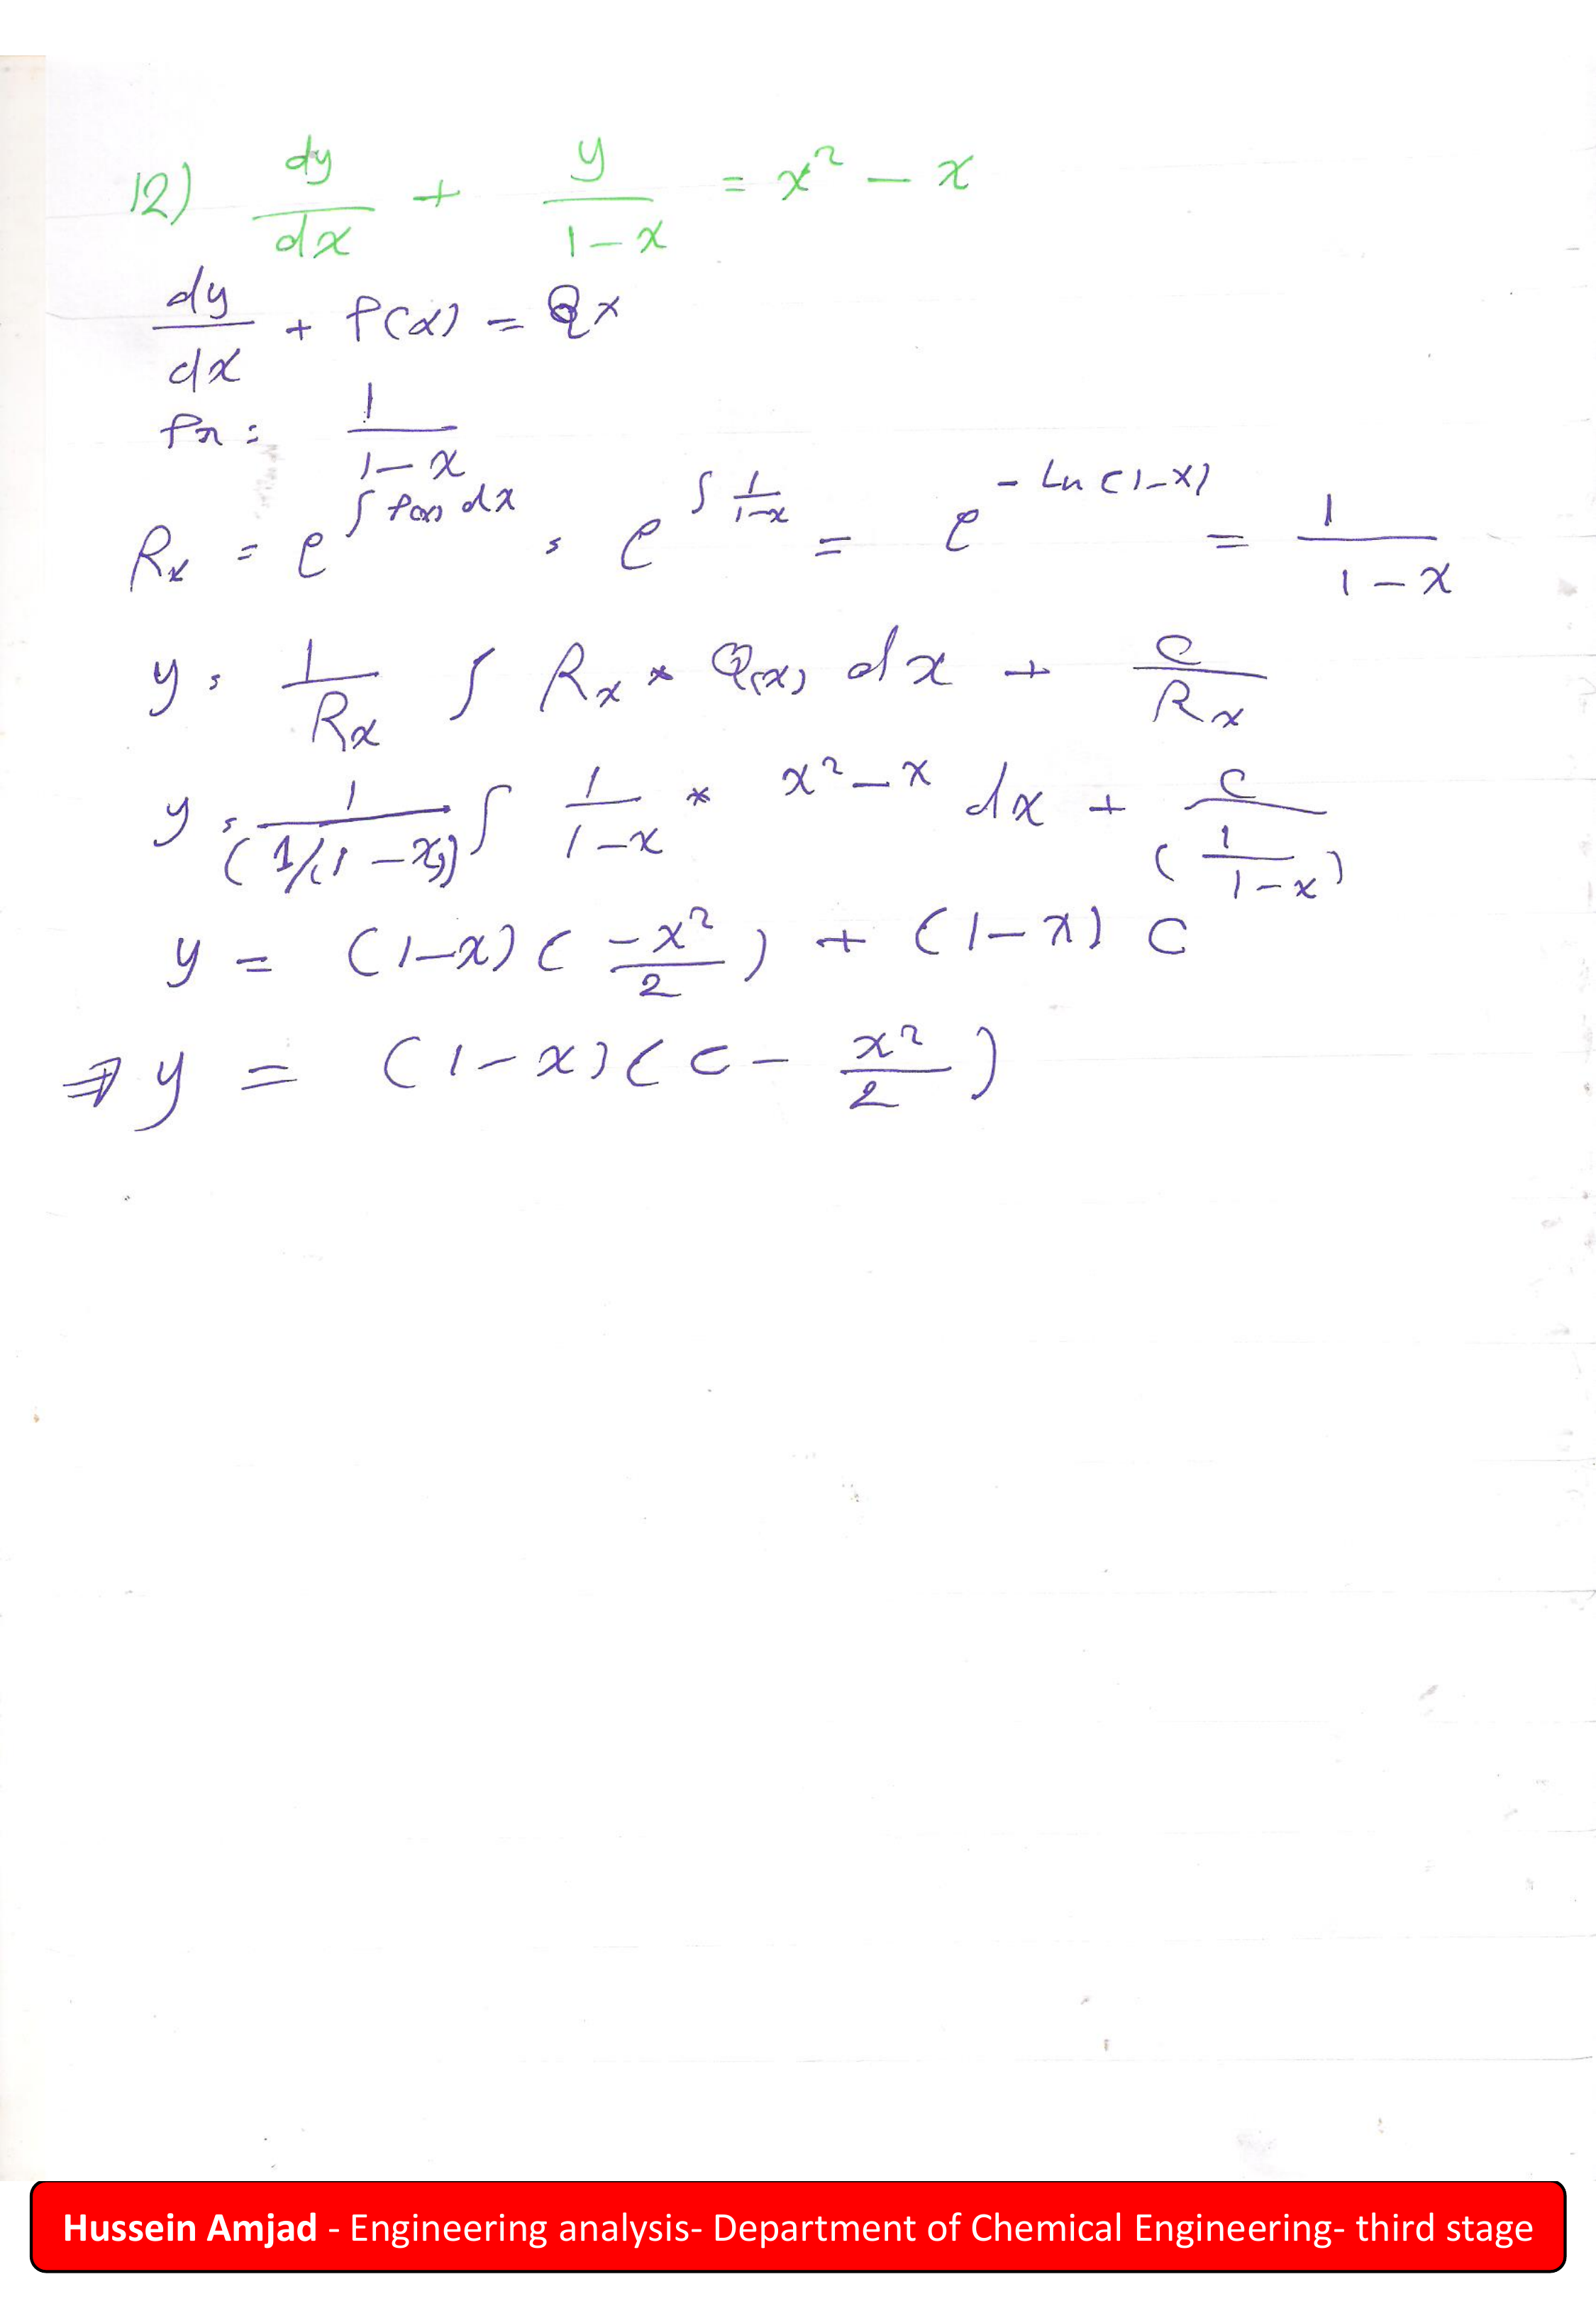 12) dy/dx + y/(1-x) = x² - x
dy/dx + P(x) = Qx
Px = 1/(1-x)
Rx = e^∫P(x) dx = e^∫1/(1-x) = e^-Ln(1-x) = 1/(1-x)
y = 1/Rx ∫ Rx * Q(x) dx + c/Rx
y = 1/(1/(1-x)) ∫ 1/(1-x) * x²-x dx + c/(1/(1-x))
y = (1-x)(-x²/2) + (1-x) c
⇒ y = (1-x)(c - x²/2)
Hussein Amjad - Engineering analysis- Department of Chemical Engineering- third stage